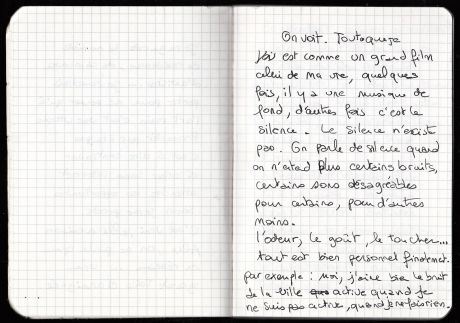 On voit. Tout ce que je
vois est comme un grand film
celui de ma vie, quelques
fois, il y a une musique de
fond, d'autres fois c'est le
silence. Le silence n'existe
pas. On parle de silence quand
on n'entend plus certains bruits,
certains sons désagréables
pour certains, pour d'autres
moins.
l'odeur, le goût, le toucher...
tout est bien personnel finalement.
par exemple : moi, j'aime bien le bruit
de la ville active quand je
ne suis pas active, quand je ne fais rien.